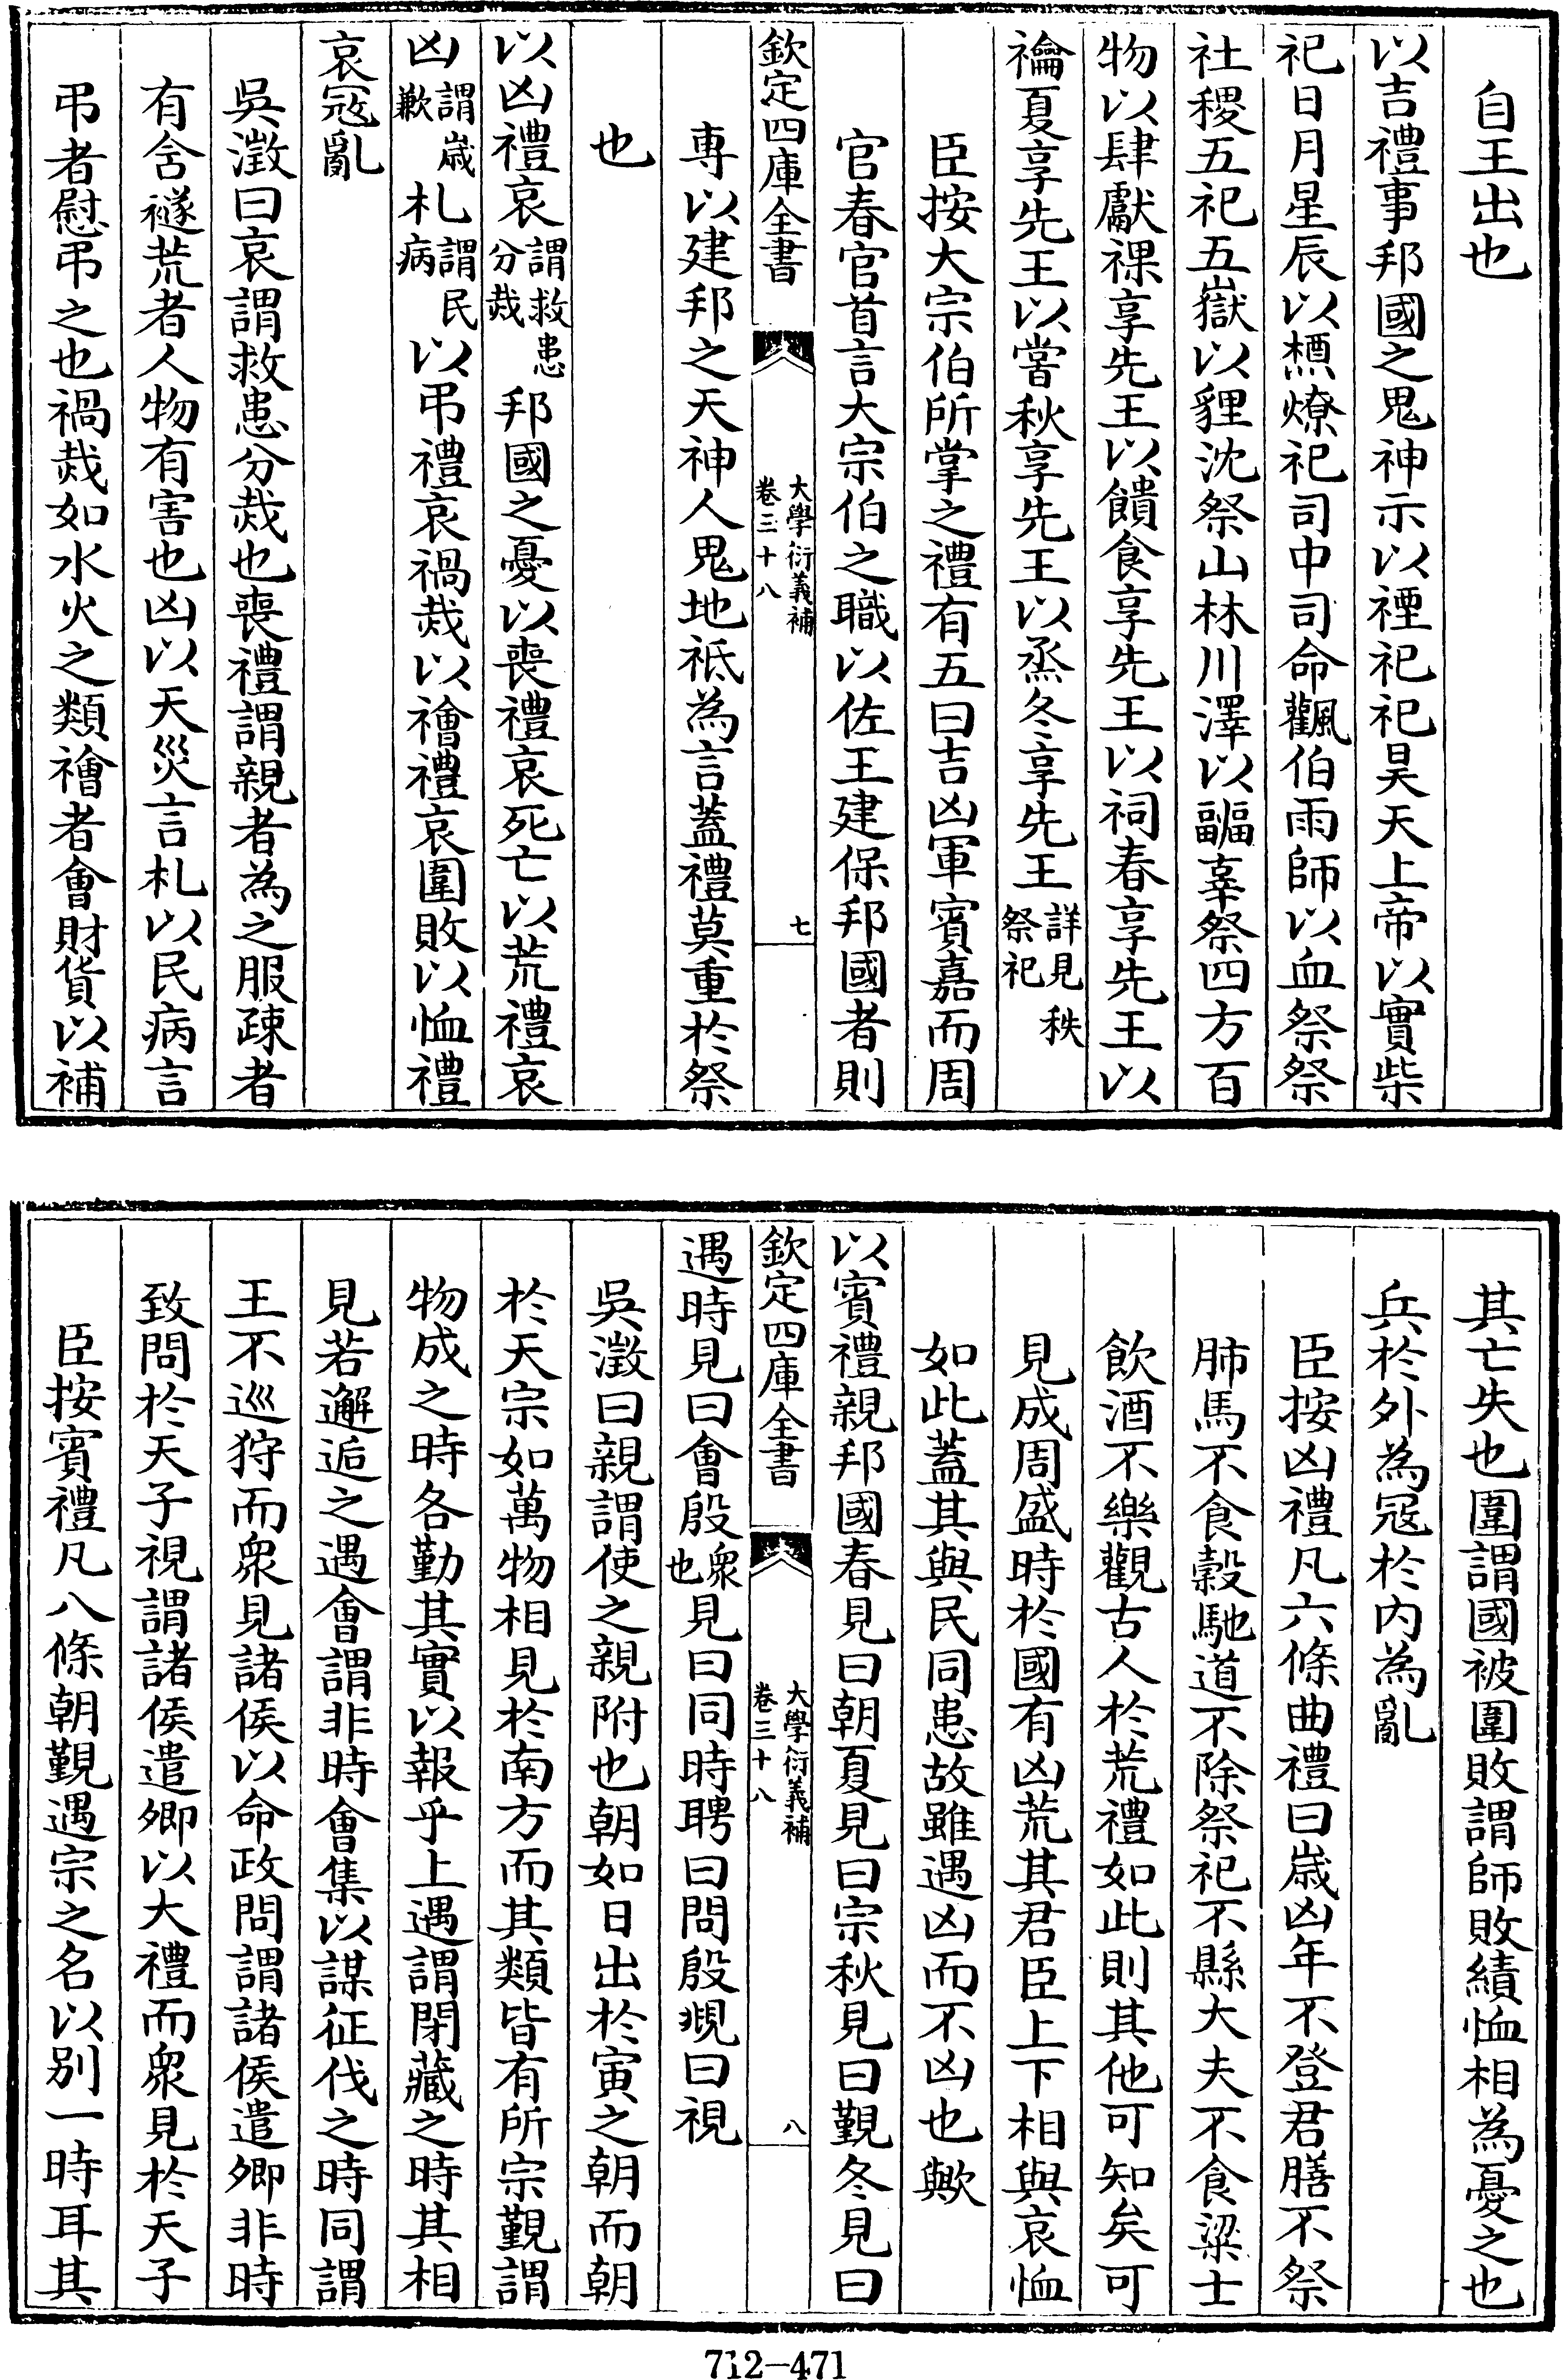 自王出也
以吉禮事邦國之鬼神示以禋祀祀昊天上帝以實柴
祀日月星辰以槱燎祀司中司命飌伯雨師以血祭祭
社稷五祀五嶽以貍沈祭山林川澤以疈辜祭四方百
物以肆獻祼享先王以饋食享先王以祠春享先王以
禴夏享先王以嘗秋享先王以烝冬享先王詳見秩祭祀
臣按大宗伯所掌之禮有五曰吉凶軍賓嘉而周
官春官首言大宗伯之職以佐王建保邦國者則
欽定四庫全書 大學衍義補 卷三十八 七
専以建邦之天神人鬼地祗為言蓋禮莫重於祭
也
以凶禮哀謂救患分烖邦國之憂以喪禮哀死亡以荒禮哀
凶謂歳歉札謂民病以弔禮哀禍烖以禬禮哀圍敗以恤禮
哀冦亂
吳澂曰哀謂救患分烖也喪禮謂親者為之服疎者
有含襚荒者人物有害也凶以天災言札以民病言
弔者慰弔之也禍烖如水火之類禬者會財貨以補
其亡失也圍謂國被圍敗謂師敗績恤相為憂之也
兵於外為冦於内為亂
臣按凶禮凡六條曲禮曰歳凶年不登君膳不祭
肺馬不食榖馳道不除祭祀不縣大夫不食粱士
飲酒不樂觀古人於荒禮如此則其他可知矣可
見成周盛時於國有凶荒其君臣上下相與哀恤
如此蓋其與民同患故雖遇凶而不凶也歟
以賓禮親邦國春見曰朝夏見曰宗秋見曰覲冬見曰
欽定四庫全書 大學衍義補 卷三十八 八
遇時見曰會殷衆也見曰同時聘曰問殷覜曰視
吳澂曰親謂使之親附也朝如日出於寅之朝而朝
於天宗如萬物相見於南方而其類皆有所宗覲謂
物成之時各勤其實以報乎上遇謂閉藏之時其相
見若邂逅之遇會謂非時會集以謀征伐之時同謂
王不巡狩而衆見諸侯以命政問謂諸侯遣卿非時
致問於天子視謂諸侯遣卿以大禮而衆見於天子
臣按賓禮凡八條朝覲遇宗之名以别一時耳其
712-471